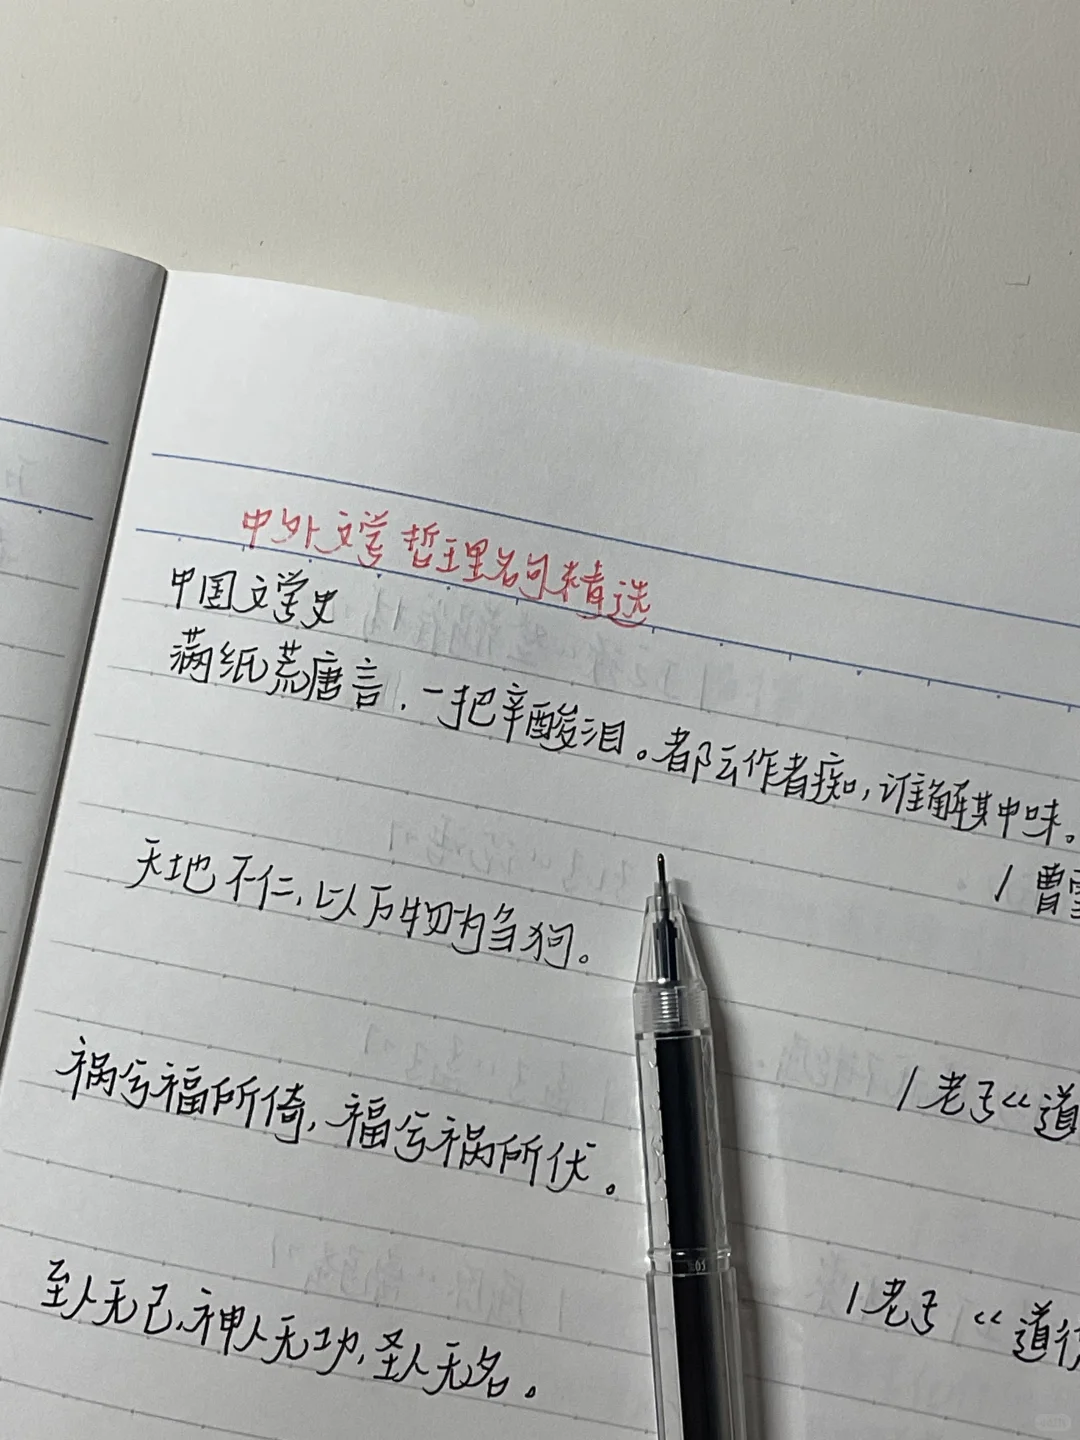 中外文学哲理名句精选
中国文学史
满纸荒唐言，一把辛酸泪。都云作者痴，谁解其中味。
/ 曹雪
天地不仁，以万物为刍狗。
/ 老子《道
祸兮福所倚，福兮祸所伏。
/ 老子《道德
至人无己、神人无功，圣人无名。